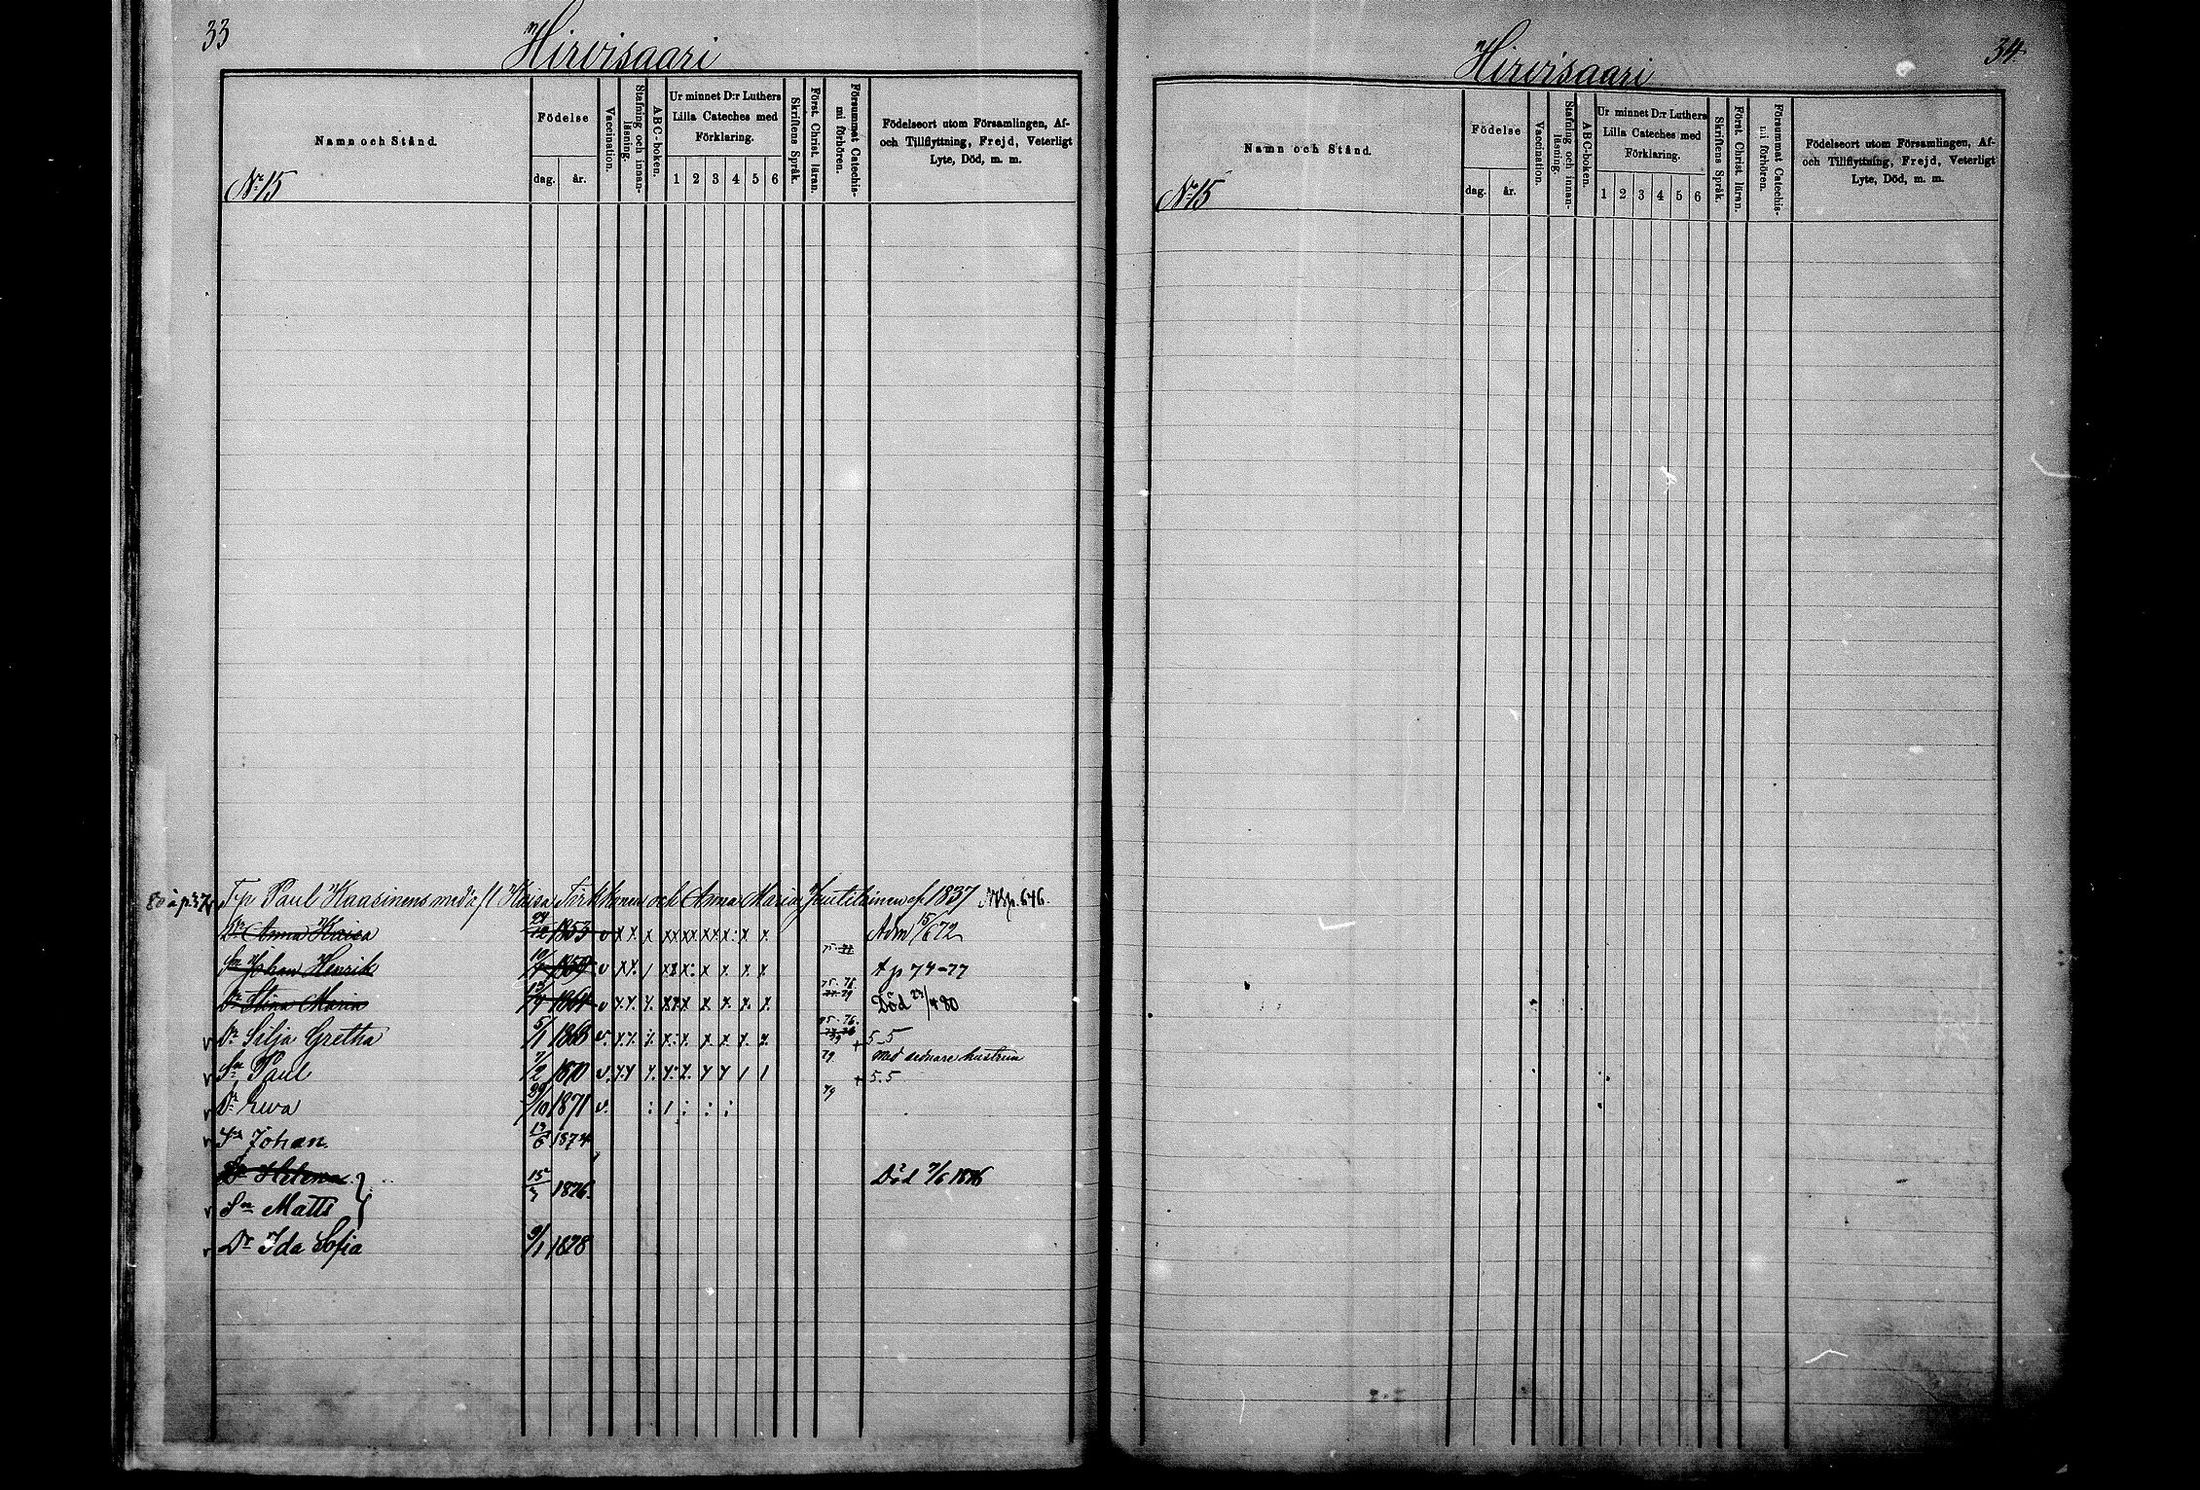 33
Hirvisaari
Namn och Stånd.
Födelse
dag.
år.
Vaccination.
Stafning och innan-
läsning.
ABC-boken.
Ur minnet D:r Luthers
Lilla Cateches med
Förklaring.
1 2 3 4 5 6
Skriftens Språk.
Först. Christ. läran.
Försummat Catechis-
mi förhören.
Födelseort utom Församlingen, Af-
och Tillflyttning, Frejd, Veterligt
Lyte, Död, m. m.
N:15
Paul Kaasinens med Kaisa och Anna Maria 1837 p. 646.
Dr Anna Kaisa 1853 v x x x x x x x x x x x Adm 15/6 72
Sn Johan Henrik v x x 75. Ap 74-77
Dr Stina Maria 1864 v x x x x x x x x x x 75. 76. Död 80
v Dr Silja Gretha 5/1 1868 v x x x x x x x x x 75. 76. 5-5
79 med senare hustrun
v Sn Paul 7/2 1870 v x x x x x x x / / 5.5
v Dr Eva 29/10 1871 v. : / : : : 79
v Sn Johan. 13/6 1874
Dr Helena 15/3 1876. Död 7/6 1876
v Sn Matts
v Dr Ida Sofia 9/1 1878
Hirvisaari
34
Namn och Stånd.
Födelse
dag.
år.
Vaccination.
Stafning och innan-
läsning.
ABC-boken.
Ur minnet D:r Luthers
Lilla Cateches med
Förklaring.
1 2 3 4 5 6
Skriftens Språk.
Först. Christ. läran.
Försummat Catechis-
mi förhören.
Födelseort utom Församlingen, Af-
och Tillflyttning, Frejd, Veterligt
Lyte, Död, m. m.
N:15